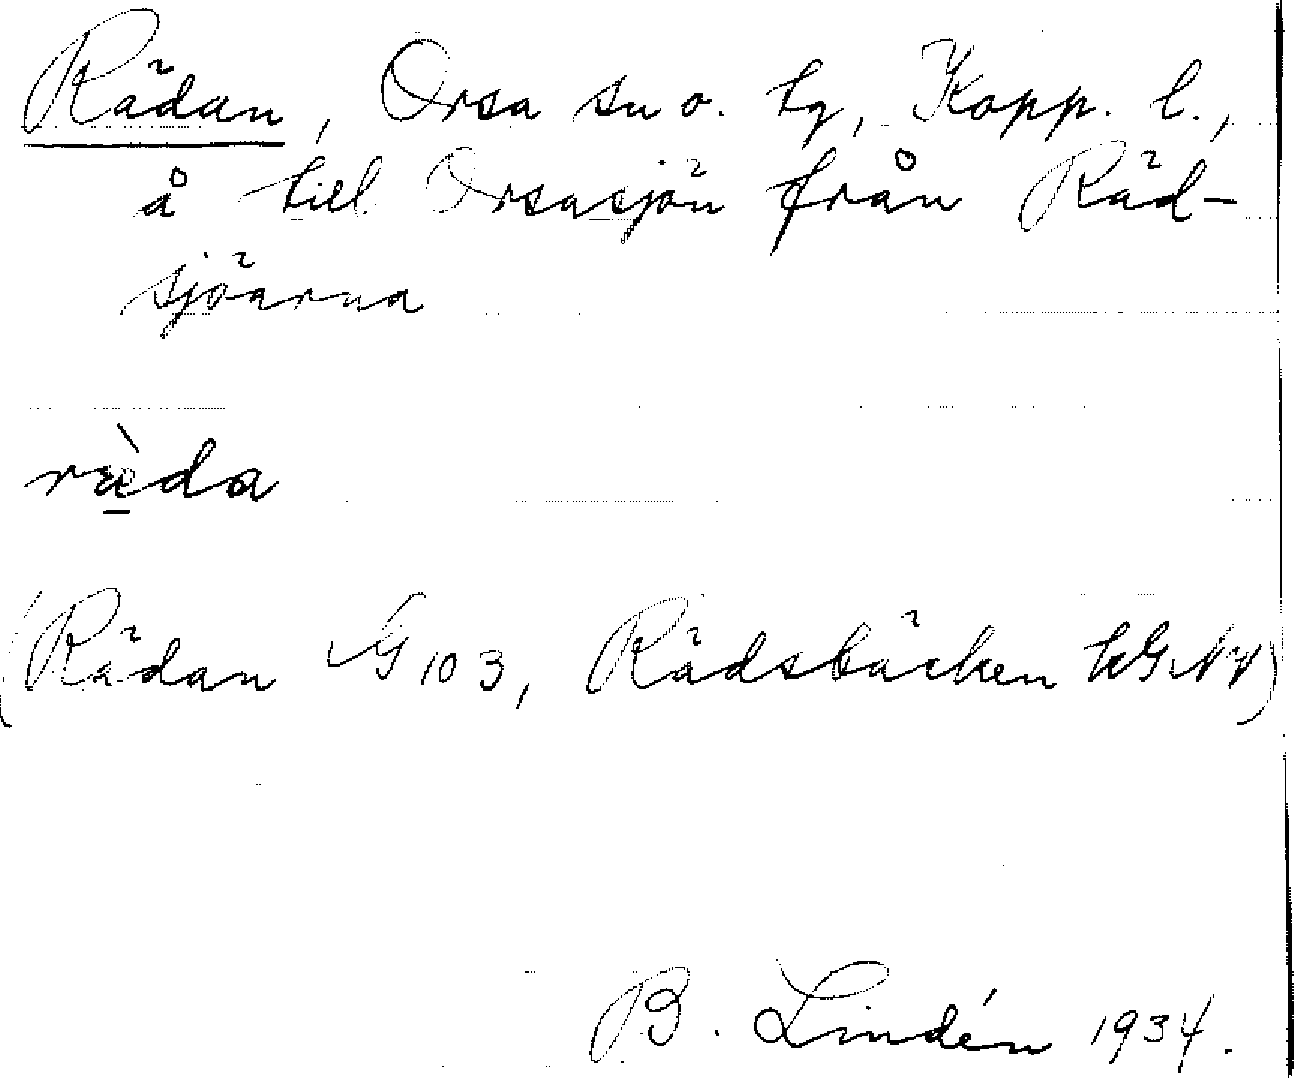 Rädan, Orsa sn o. tg, Kopp. l.,
å till Orsasjön från Räd-
sjöarna
ru̠èda
(Rädan G 103, Rädsbäcken hGNV)
B. Lindén 1934.